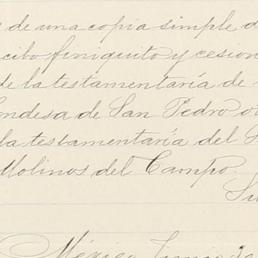 de una copia simple d
cibo finiquito y cesion
de la testamentaría de
ondesa de San Pedro
la testamentaría del
Molinos del Campo.
México, Junio